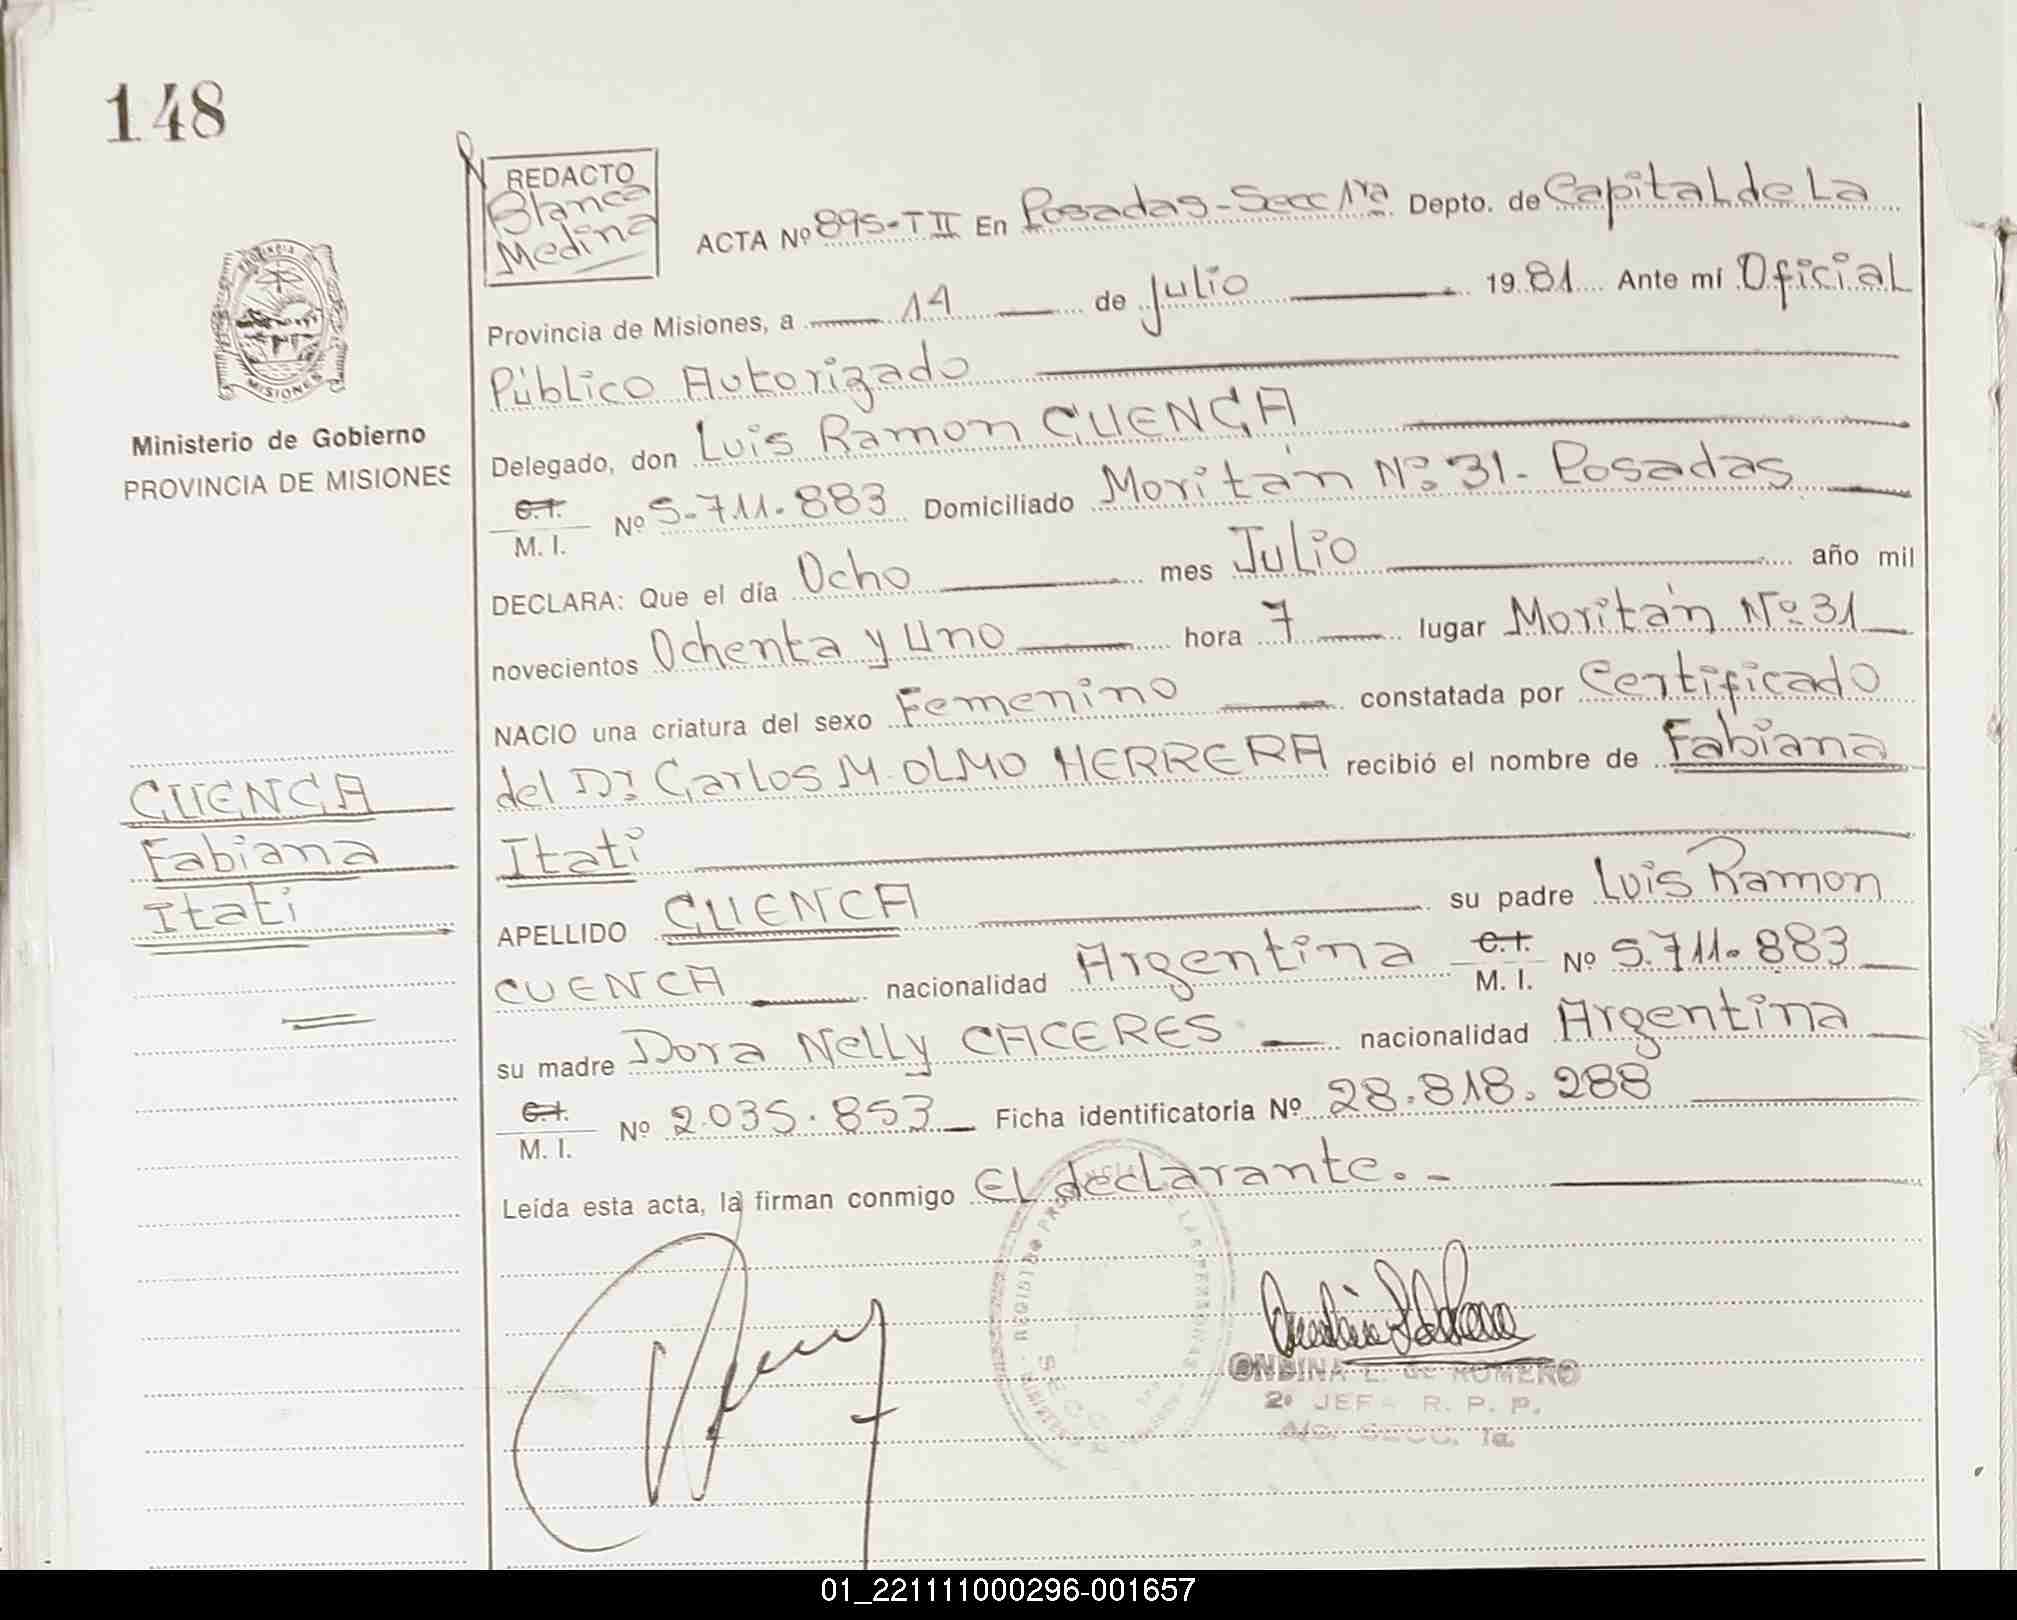 148
REDACTO
Blanca
Medina
ACTA Nº 895-TII En Posadas-Secc 1ra Depto. de Capital de La
Provincia de Misiones, a 14 de Julio 1981 Ante mí Oficial
Público Autorizado
Delegado, don Luis Ramon CUENCA
C.I. M. I. Nº 5.711.883 Domiciliado Moritán Nº 31. Posadas
DECLARA: Que el día Ocho mes Julio año mil
novecientos Ochenta y Uno hora 7 lugar Moritán Nº 31
NACIO una criatura del sexo Femenino constatada por Certificado
del Dr. Carlos M. OLMO HERRERA recibió el nombre de Fabiana
Itati
APELLIDO CUENCA su padre Luis Ramon
CUENCA nacionalidad Argentina C.I. M. I. Nº 5.711.883
su madre Dora Nelly CACERES nacionalidad Argentina
C.I. M. I. Nº 2.035.853 Ficha identificatoria Nº 28.818.288
Leída esta acta, la firman conmigo El declarante.-
MISIONES
Ministerio de Gobierno
PROVINCIA DE MISIONES
CUENCA
Fabiana
Itati
ONDINA L. de ROMERO
2º JEFA R. P. P.
A/C. SECC. 1a.
01_221111000296-001657